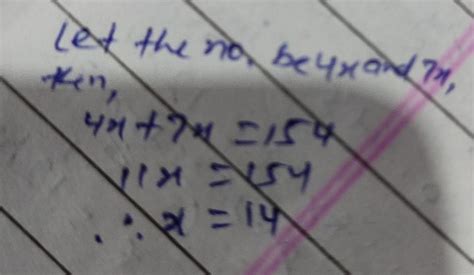 Let the no. be 4x and 7x,
then,
4x + 7x = 154
11x = 154
∴ x = 14